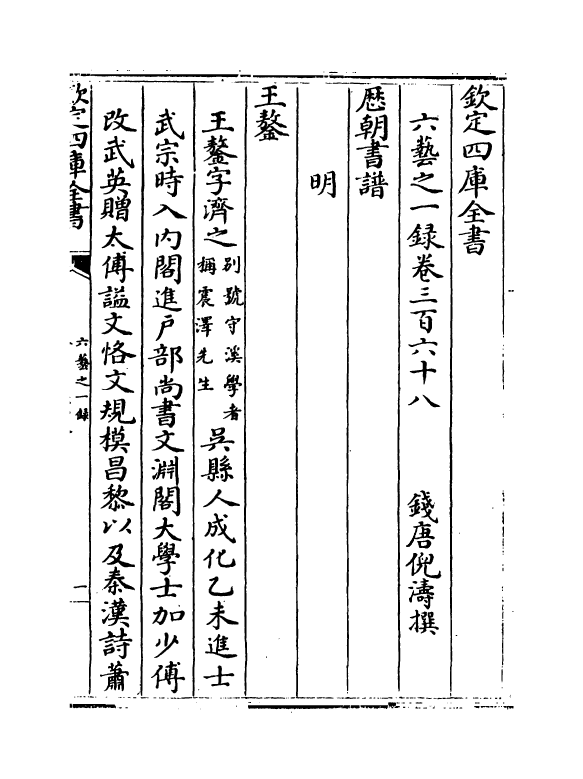 欽定四庫全書
六藝之一録卷三百六十八
錢唐倪濤撰
歴朝書譜
明
王鏊
王鏊字濟之別號守溪學者稱震澤先生吳縣人成化乙未進士
武宗時入内閣進戶部尚書文淵閣大學士加少傅
改武英贈太傅謚文恪文規模昌黎以及秦漢詩蕭
欽定四庫全書
六藝之一録
一